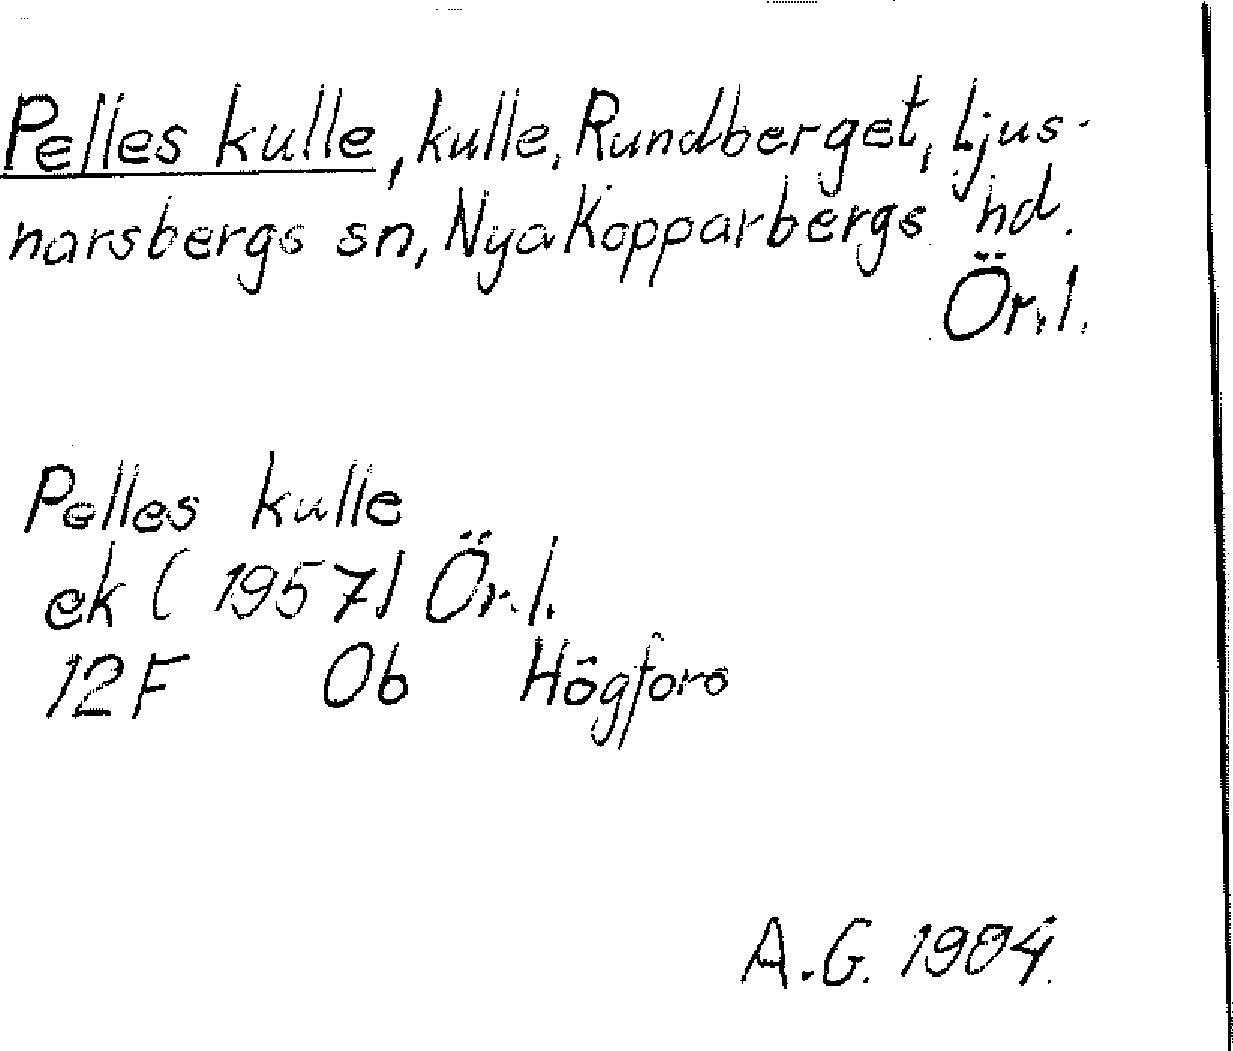 Pelles kulle, kulle, Rundberget, Ljus-
narsbergs sn, Nya Kopparbergs hd.
Ör.l.
Pelles kulle
ek (1957) Ör.l.
12F 0b Högfors
A.G. 1984.